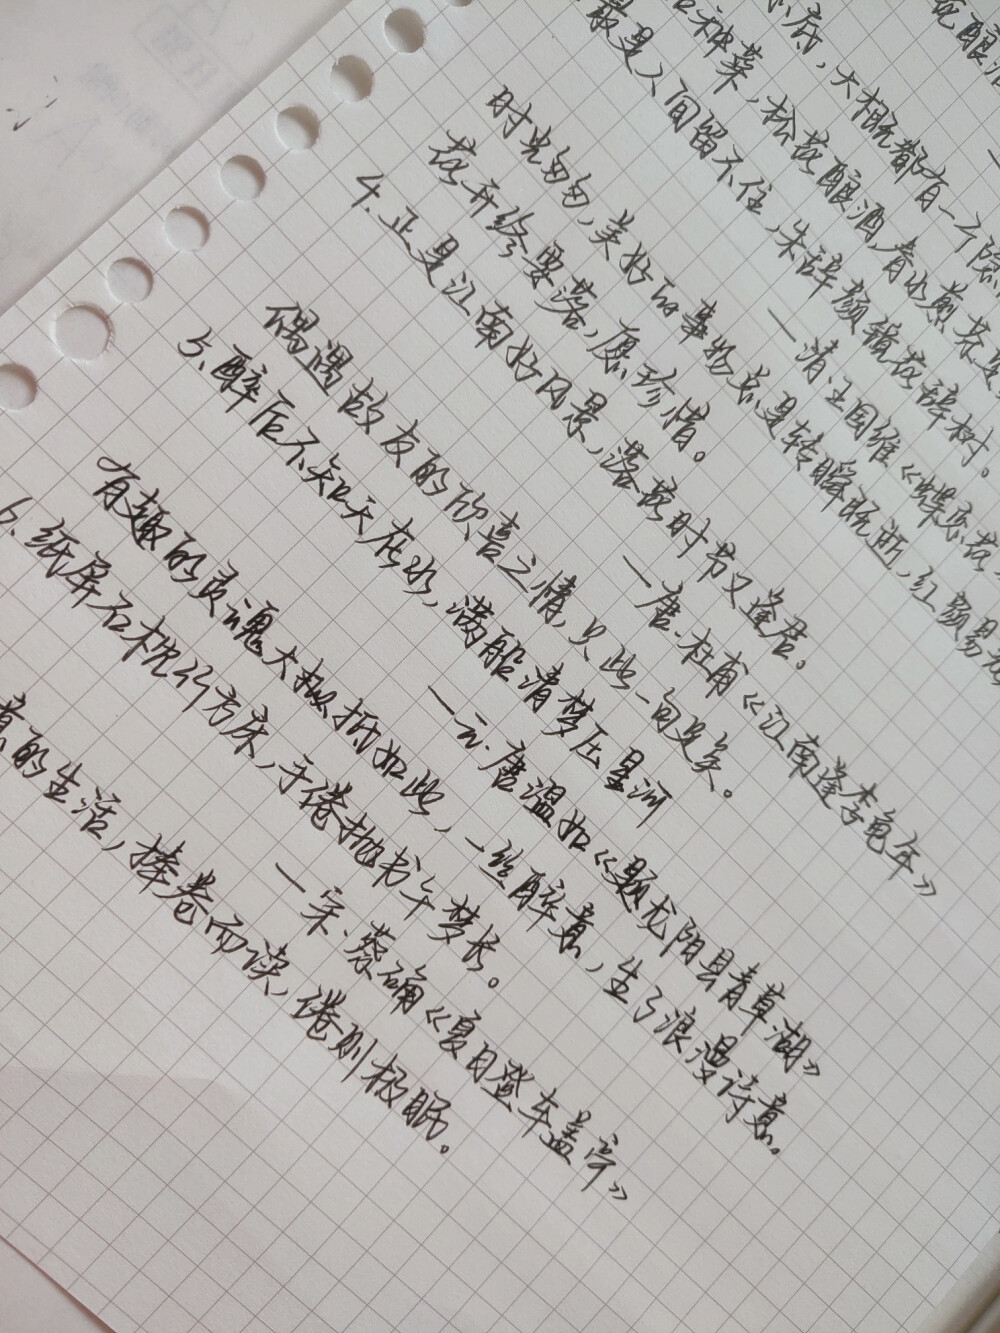 花酿酒
底，大概都有一个隐
种菜，松花酿酒，春水煎茶
最是人间留不住，朱辞颜镜花辞树。
—清·王国维《蝶恋花
时光匆匆，美好的事物总是转瞬既逝，红颜易老
花开终要落，愿珍惜。
4.正是江南好风景，落花时节又逢君。
—唐·杜甫《江南逢李龟年》
偶遇故友的欣喜之情，只此一句是矣。
5.醉后不知天在水，满船清梦压星河
—元·唐温如《题龙阳县青草湖》
有趣的灵魂大抵拆如此，一丝醉意，生了浪漫诗意。
6.纸屏石枕竹方床，手倦抛书午梦长。
—宋·蔡确《夏日登车盖亭》
意的生活，捧卷而读，倦则极眠。